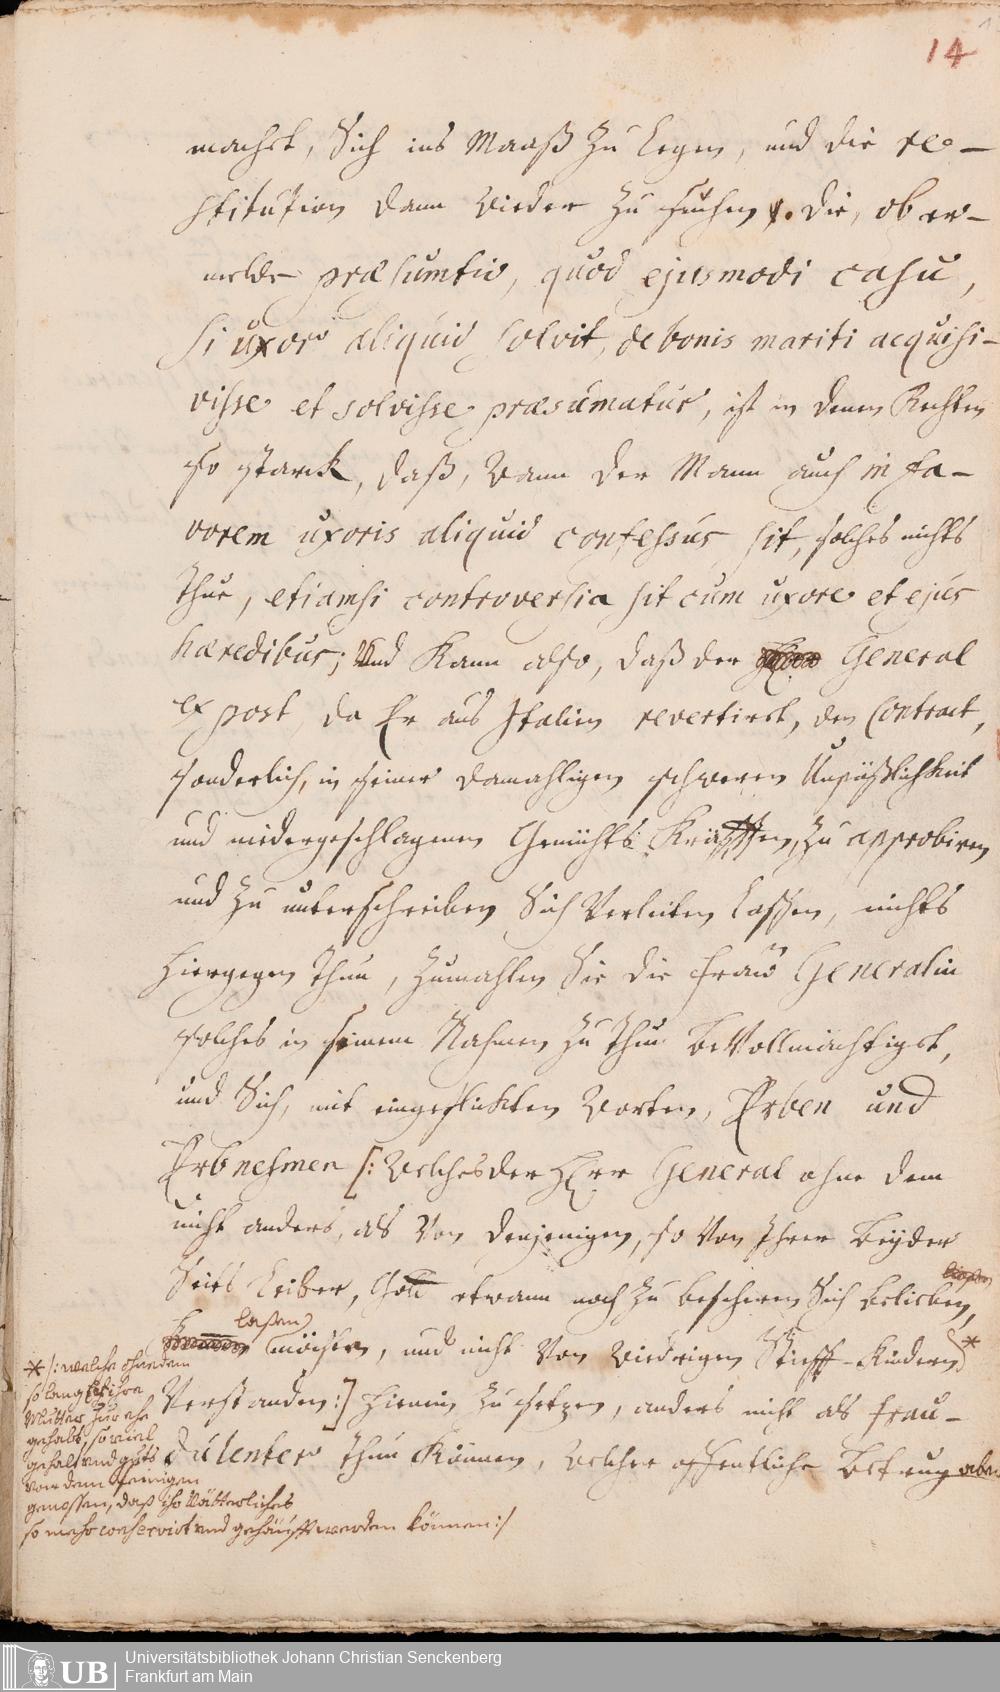 14
machet, Sich ins Maaß zu legen, und die re-
stitution dann wieder zu suchen. Die, ober-
melde præsumtio, quod ejusmodi casu,
si uxor aliquid solvit, de bonis mariti acquisi-
visse et solvisse præsumatur, ist in denen Rechten
so starck, daß, wann der Mann auch in fa-
vorem uxoris aliquid confessus sit, solches nichts
thue, etiamsi controversia sit cum uxore et ejus
hæredibus; Und kann also, daß der General
ex post, da Er aus Italien revertiret, den Contract,
sonderlich, in seiner damahligen schweren Unpäßlichkeit
und niedergeschlagenen Gemühts Kräfften, zu approbiren
und zu unterschreiben Sich verleiten lassen, nichts
hiergegen thun, zumahlen Sie die Frau Generalin
solches in seinem Nahmen zu thun bevollmächtiget,
und Sich, mit eingeflickten worten, Erben und
Erbnehmen [: welches der Herr General ohne dem
nicht anders, als von denjenigen, so von Ihrer beyder
Seits Leiber, Gott etwann noch zu bescheren Sich belieben,
laßen
möchte, und nicht von wiedrigen Stieff-Kindern *
verstanden :] hierein zu setzen, anders nicht als frau-
dulenter thun können, welcher offentliche Betrug aber
* /: welche ohne dem
so lang Er ihre
Mutter zur ehe
gehabt, so viel
gehalt und guts
von dem seinigen
genossen, daß ihr Vätterliches
so mehr conservirt und gehäufft werden können :/
UB
Universitätsbibliothek Johann Christian Senckenberg
Frankfurt am Main